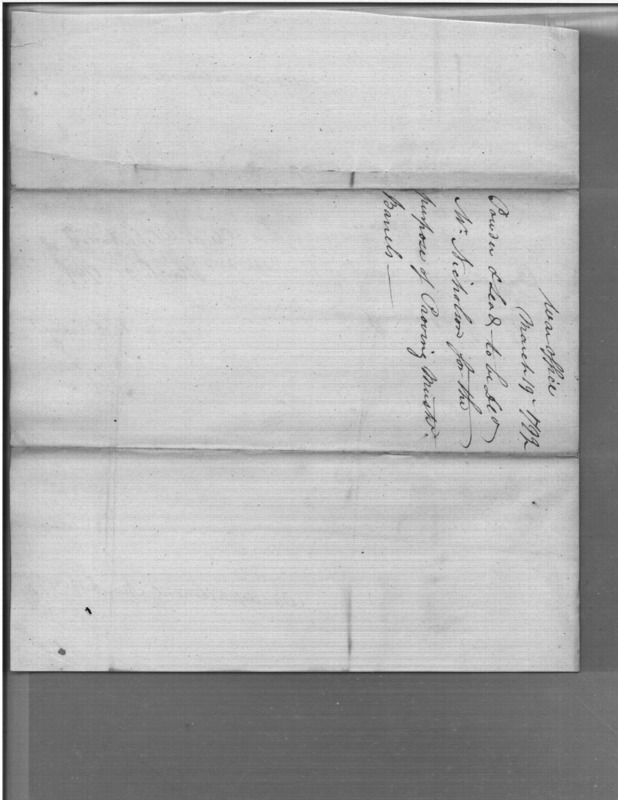 War Office
March 19th 1792
Powder & Lead to be Deld
Mr. Nicholson for the
purpose of Proving Muskt.
Barrels —